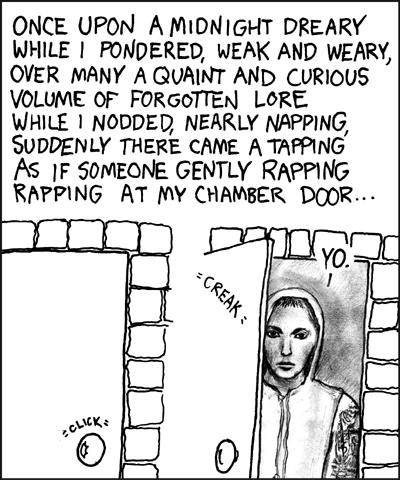 ONCE UPON A MIDNIGHT DREARY
WHILE I PONDERED, WEAK AND WEARY,
OVER MANY A QUAINT AND CURIOUS
VOLUME OF FORGOTTEN LORE
WHILE I NODDED, NEARLY NAPPING,
SUDDENLY THERE CAME A TAPPING
AS IF SOMEONE GENTLY RAPPING
RAPPING AT MY CHAMBER DOOR...
CLICK
CREAK
YO.